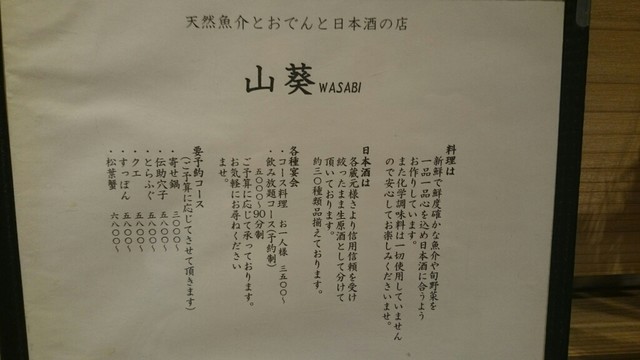 天然魚介とおでんと日本酒の店
山葵 WASABI
料理は
新鮮で鮮度確かな魚介や旬野菜を
一品一品心を込め日本酒に合うよう
お作りしています。
また化学調味料は一切使用していません
ので安心してお楽しみくださいませ。
日本酒は
各蔵元様さより信用信頼を受け
絞ったまま生原酒として分けて
頂いております。
約三〇種類品揃えております。
各種宴会
・コース料理 お一人様 三五〇〇〜
・飲み放題コース(予約制)
五〇〇〇〜90分制
ご予算に応じて承っております。
お気軽にお尋ねください
ませ。
要予約コース
(ご予算に応じてさせて頂きます)
・寄せ鍋 三〇〇〇〜
・伝助穴子 五八〇〇〜
・とらふぐ 五八〇〇〜
・クエ 五八〇〇〜
・すっぽん 五八〇〇〜
・松葉蟹 六八〇〇〜